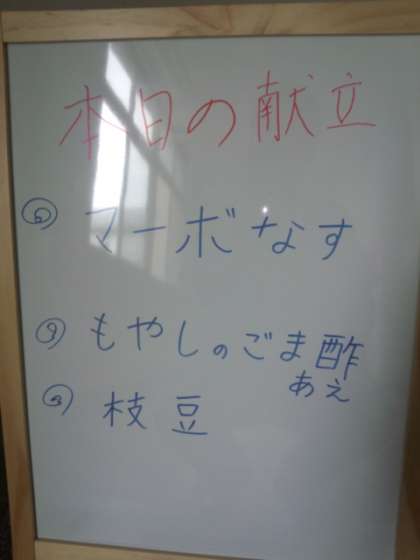 本日の献立
マーボなす
もやしのごま酢
あえ
枝豆